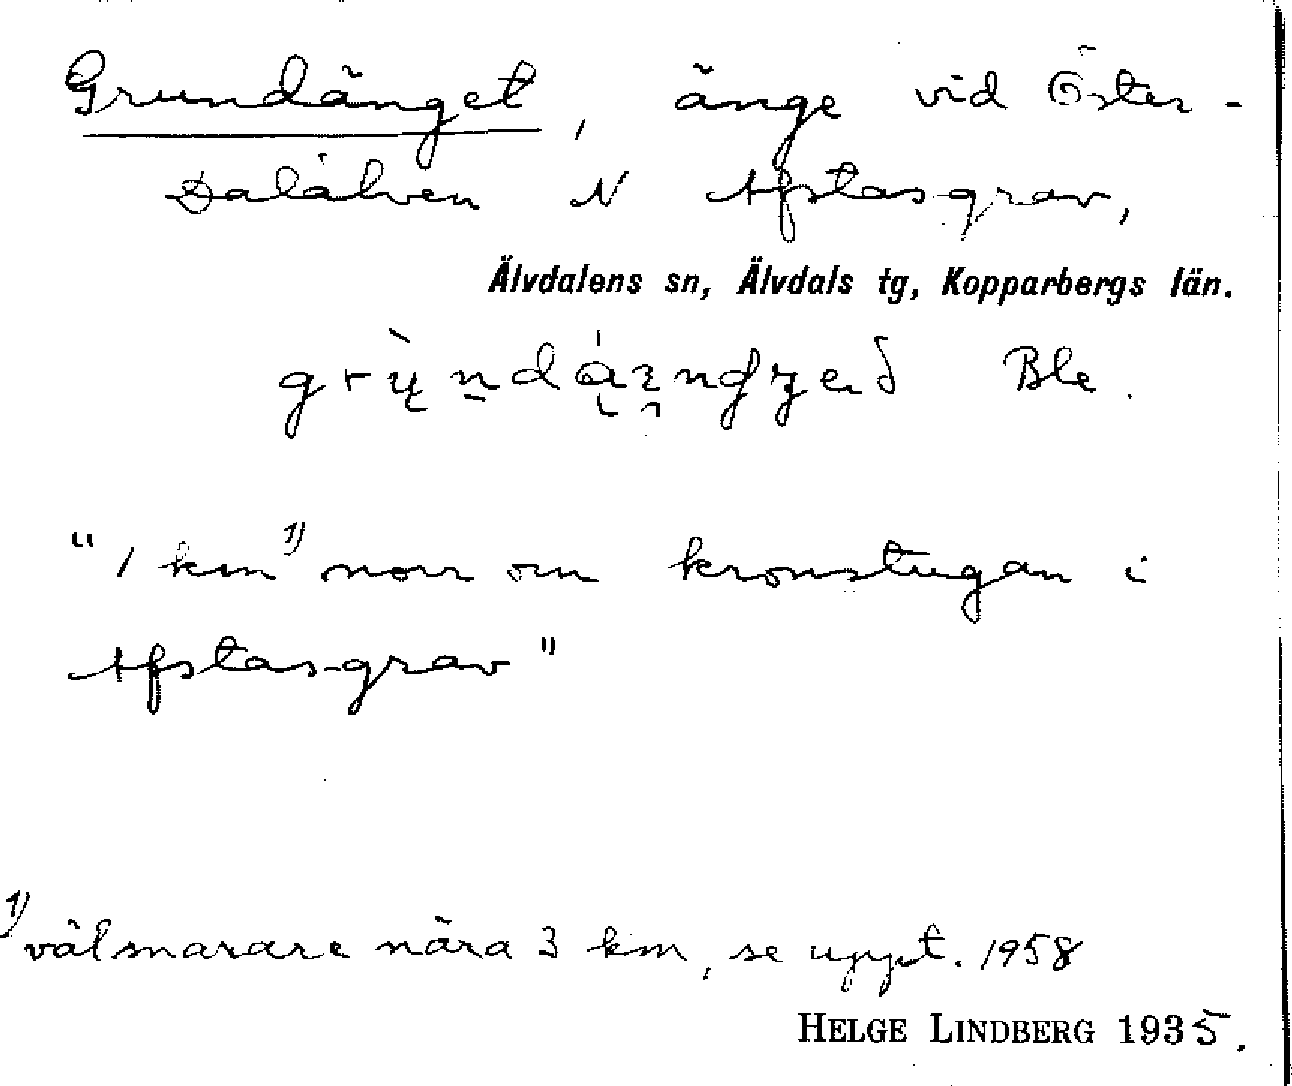 Grundänget, änge vid Öster-
dalälven N Afstasgrav,
Älvdalens sn, Älvdals tg, Kopparbergs län.
Ble.
"1 km 1) norr om kronstugan i
Afstas-grav"
1) väl snarare nära 3 km, se uppt. 1958
HELGE LINDBERG 1935.